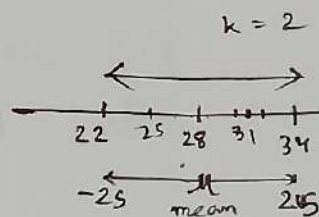 k = 2
22 25 28 31 34
-2s μ 2s
mean